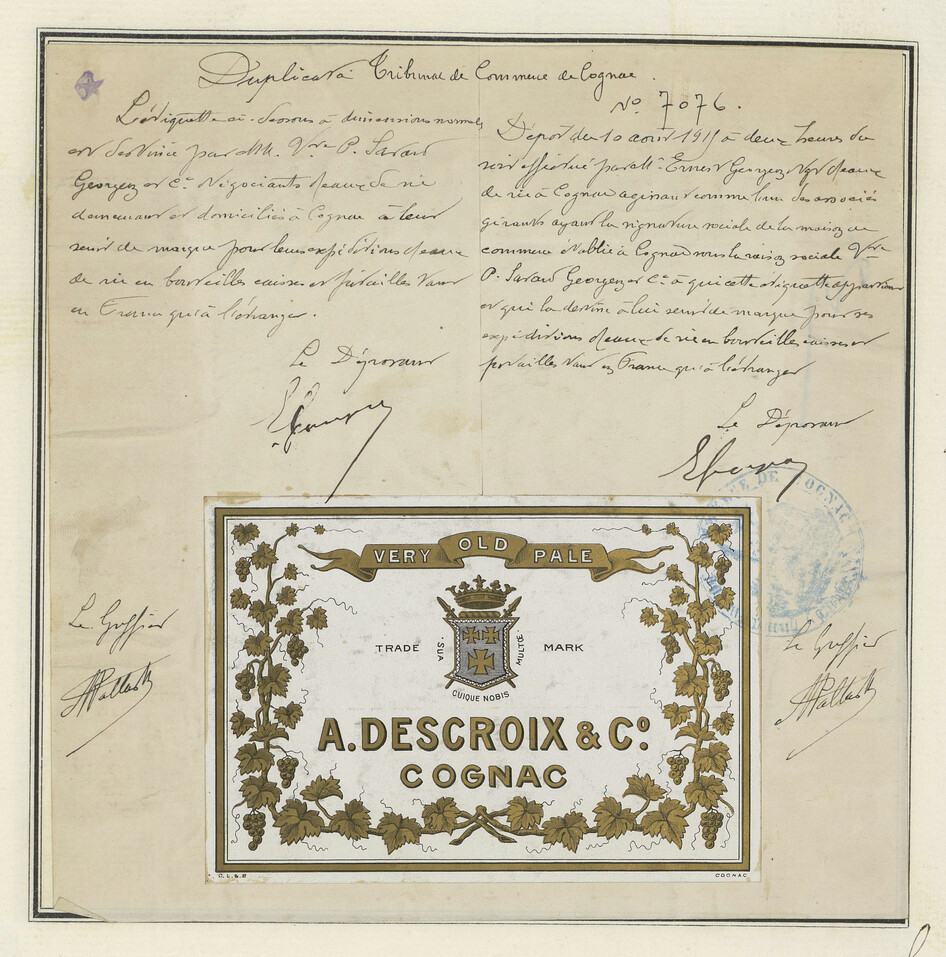 Duplicata Tribunal de Commerce de Cognac.
No 7076.
L'étiquette ci-dessous à dimensions normales
est destinée par MM. Vve P. Sarad
Georgeon et Cie Négociants d'eaux de vie
demeurant et domiciliés à Cognac à leur
servir de marque pour leurs expéditions d'eaux
de vie en bouteilles caisses et futailles tant
en France qu'à l'étranger.
Le Déposant
Dépôt du 10 août 1915 à deux heures du
soir effectué par M. Ernest Georgeon Ngt d'eaux
de vie à Cognac agissant comme l'un des associés
gérants ayant la signature sociale de la maison de
commerce établie à Cognac sous la raison sociale Vve
P. Sarad Georgeon et Cie à qui cette étiquette appartient
et qui la destine à lui servir de marque pour ses
expéditions d'eaux de vie en bouteilles caisses et
futailles tant en France qu'à l'étranger
Le Déposant
Le Greffier
Le Greffier
VERY OLD PALE
TRADE MARK
SUA MULTIE
CUIQUE NOBIS
A. DESCROIX & Co.
COGNAC
C. L. & B
COGNAC